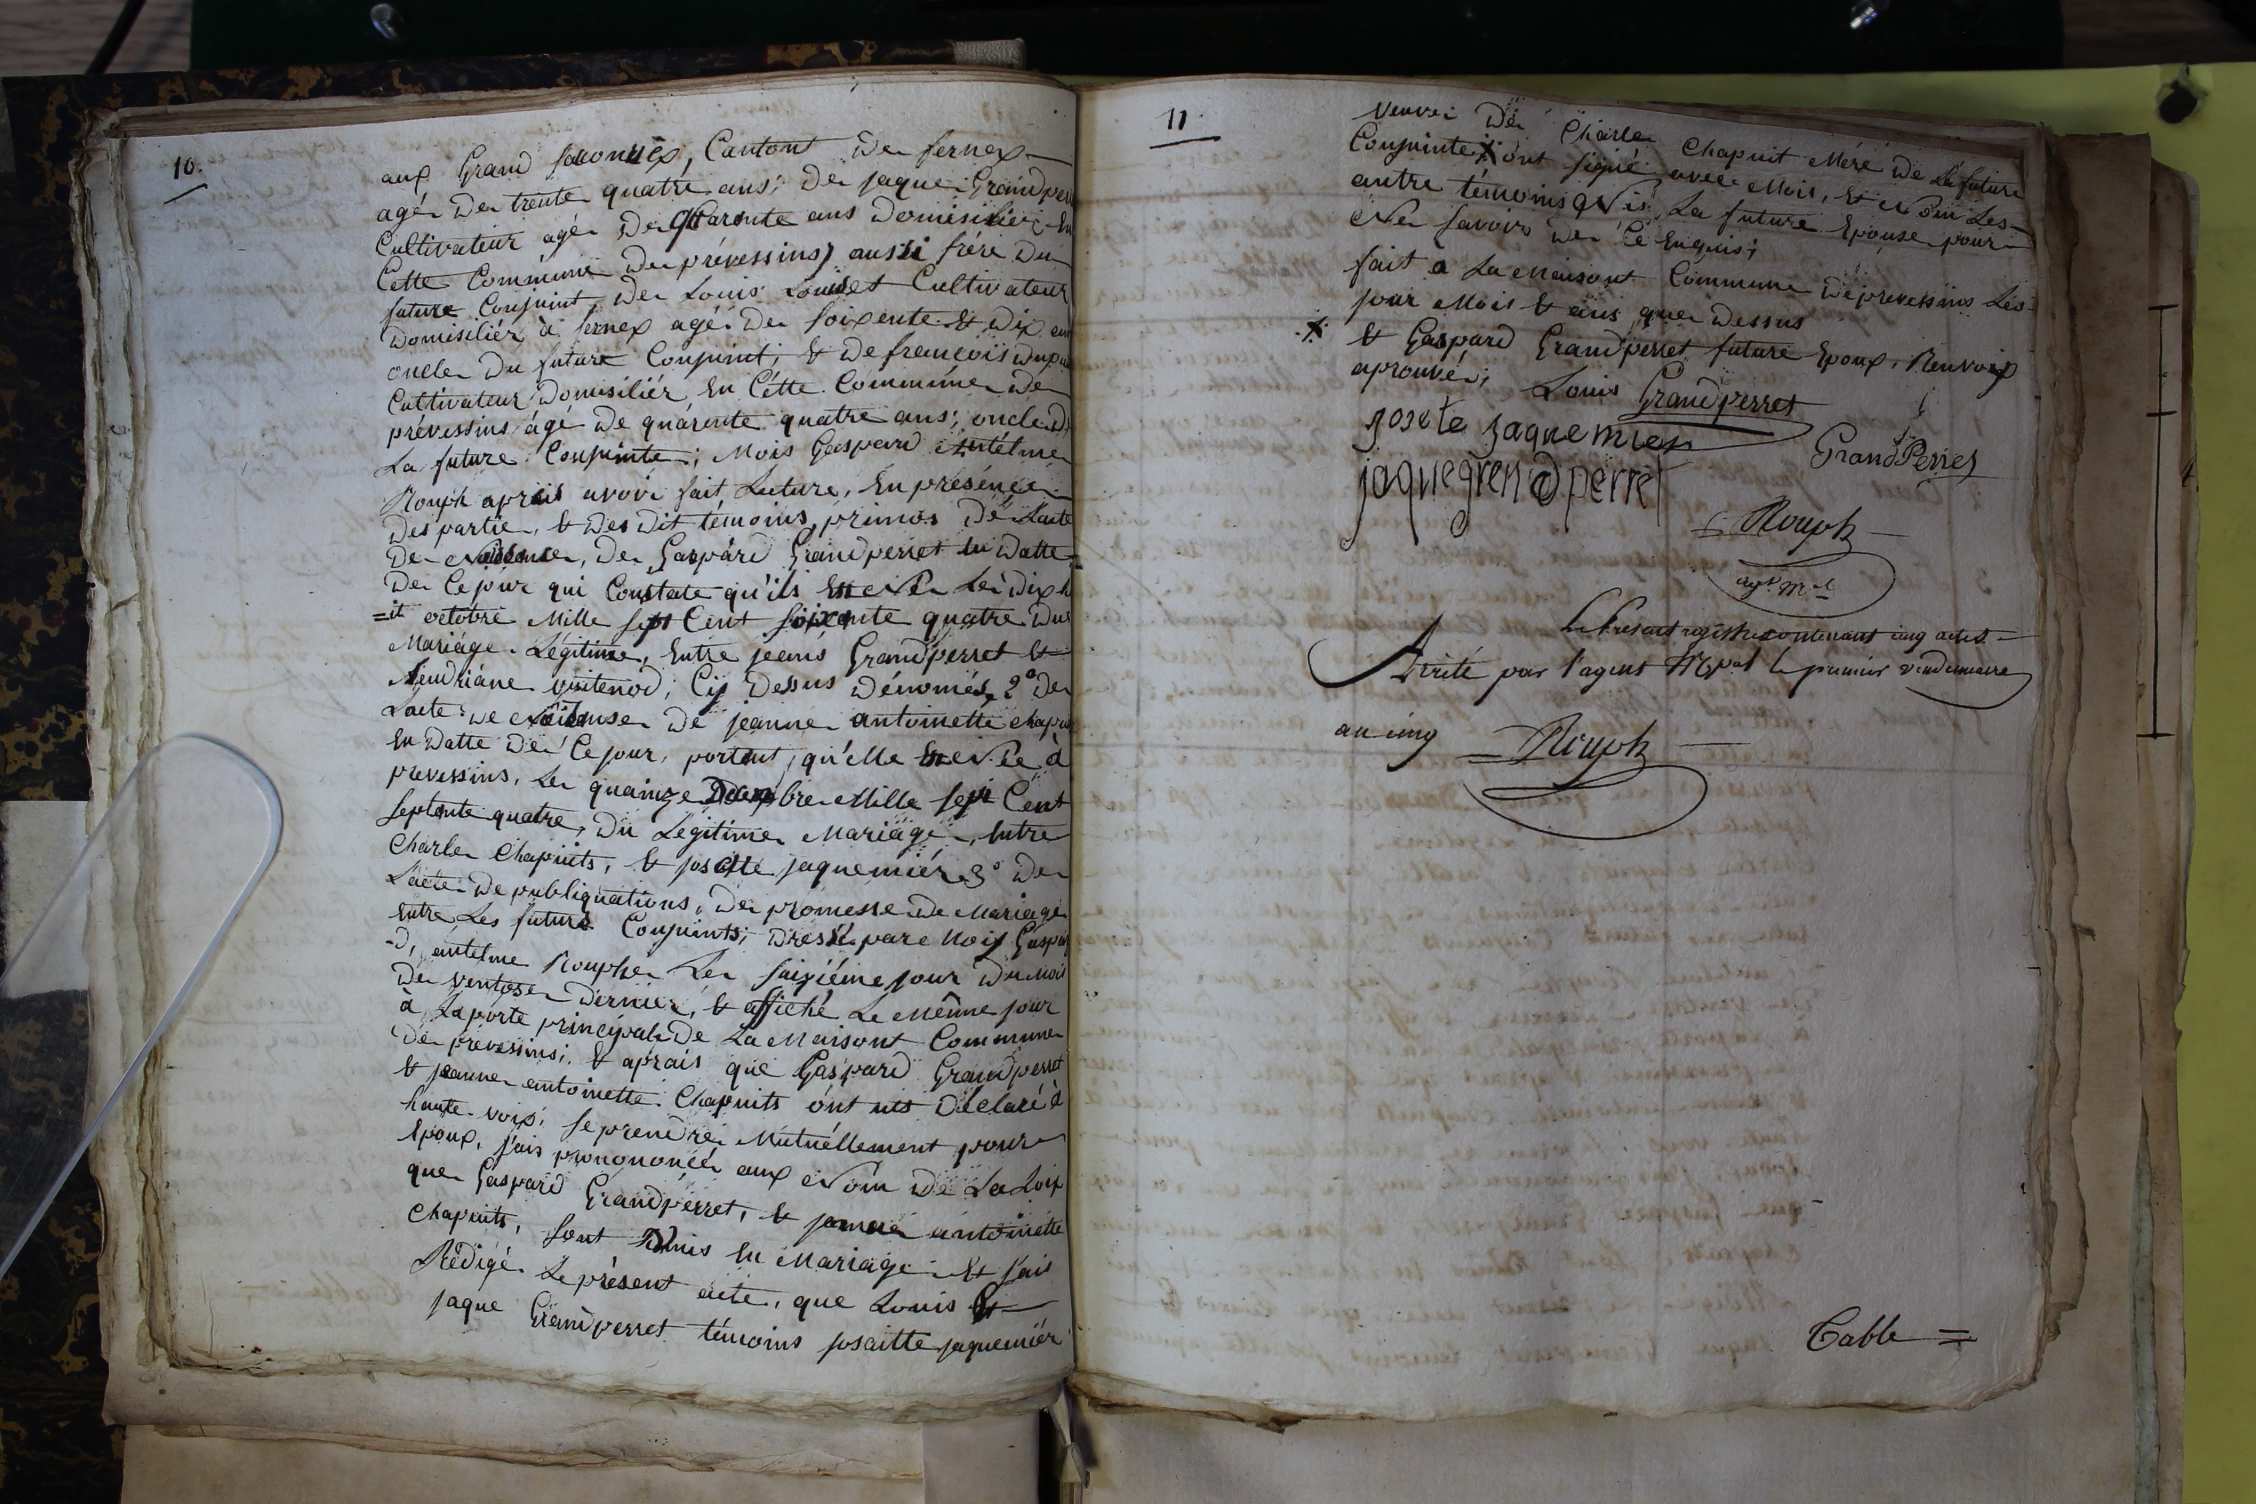 10.
aux Grand saconnex, Canton De fernex
agér De trente quatre ans; De jaque Grandper
Cultivateur agér De Quarente ans Domisiliér En
Cette Commune De prévessins, aussi frére Du
future Conjoint, De Louis Loudet Cultivateur
Domisiliér à fernex agér De soixente & Dix ans
oncle Du future Conjoint; & De françois
Cultivateur Domisiliér En Cétte Commune De
prévessins âgé De quarente quatre ans; oncle De
La future Conjointe; Mois Gaspard Antélme
Rouph aprais avoir fait Luture, En présénce
Des partie, & Des Dit témoins, primos De Lacte
De Naisense, De Gaspard Grandperret En Datte
De Ce jour qui Constate qu'ils Est Né Le Dix h
=it octobre Mille sept Cent soixente quatre Du
Mariage Légitime, Entre jeans Grandperret &
 Ci Dessus Dénomés, 2° De
Lacte De Naisense De jeanne antoinette Chapui
En Datte De Ce jour, portent, qu'elle Est Née à
prevessins, Le quainze Desembre Mille sept Cent
septente quatre, Du Légitime Mariage, Entre
Charle Chapuits, & josette jaquemiér 3° De
L'acte De publiquations, De promesse De Mariage
Entre Les futurs Conjuints; Dressé pare Mois Gaspar
=D, antelme Rouph Le saixiéme jour Du Mois
De Ventose Dérnier, & affiché Le Même jour
à La porte principal De La Maisont Commune
De prévessins; & aprais que Gaspard Grandperret
& jeanne antoinette Chapuits ónt uts Déclaré à
haute voix, se prendre Mutuéllement pour
Epoux, j'ais pronononcér aux Nom De La Loix
que Gaspard Grandperret, & jeanne antoinette
Chapuits, sont Unis En Mariage & j'ais
Rédigé Le présent acte, que Louis &
jaque Grandperret témoins josaitte jaquemiér
11.
veuve De Charle Chapuit Mére De La future
Conjointe X ónt signé avec Mois, & Nom Les
autre témoins Ni La future Epouse pour
Ne savoir De Ce Enquis;
fait a La Maisont Commune De prevessins Les
jour Mois & ans que Dessus
X & Gaspard Grandperret future Epoux, Renvoix
aprouvér; Louis Grandperret
josete jaquemier
GrandPerret
jaque grend perret
Rouph
agt. M.al
Le Présent registre contenant cinq actes
Arrêté par l'agent M.pal le premier vendemiaire
an cinq Rouph
Table =